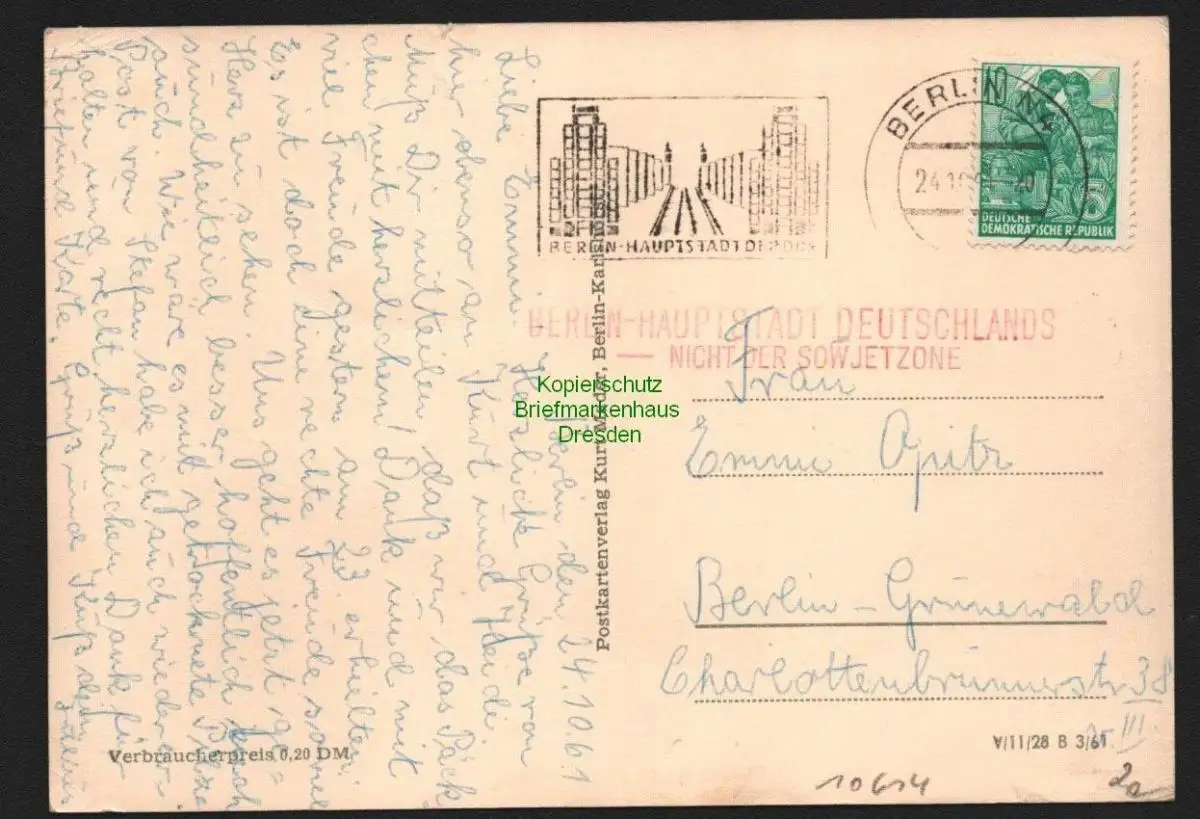 Berlin den, 24.10.61
Liebe Emmi. Herzliche Grüße von
hier ebenso an Kurt und Heidi.
Muß Dir mitteilen daß wir das Päck
chen mit herzlichem Dank und mit
viel Freude gestern am 23 erhielten.
Es ist doch eine rechte Freude soviel
Herz zu sehen. Uns geht es jetzt ge-
sundheitlich besser hoffentlich Euch
auch. Wie wäre es mit getrocknete
Post von Stefan habe ich auch wieder er-
halten und recht herzlichen Dank für
Brief und Karte. Gruß und Kuß
Verbraucherpreis 0,20 DM
Postkartenverlag Kurt Mader, Berlin-Karlshorst
BERLIN-HAUPTSTADT DER DDR
BERLIN
24.10
DEUTSCHE
DEMOKRATISCHE REPUBLIK
BERLIN-HAUPTSTADT DEUTSCHLANDS
— NICHT DER SOWJETZONE
Kopierschutz
Briefmarkenhaus
Dresden
Frau
Emmi Opitz
Berlin-Grunewald
Charlottenbrunnerstr 38
III
V/11/28 B 3/61
10614
2a